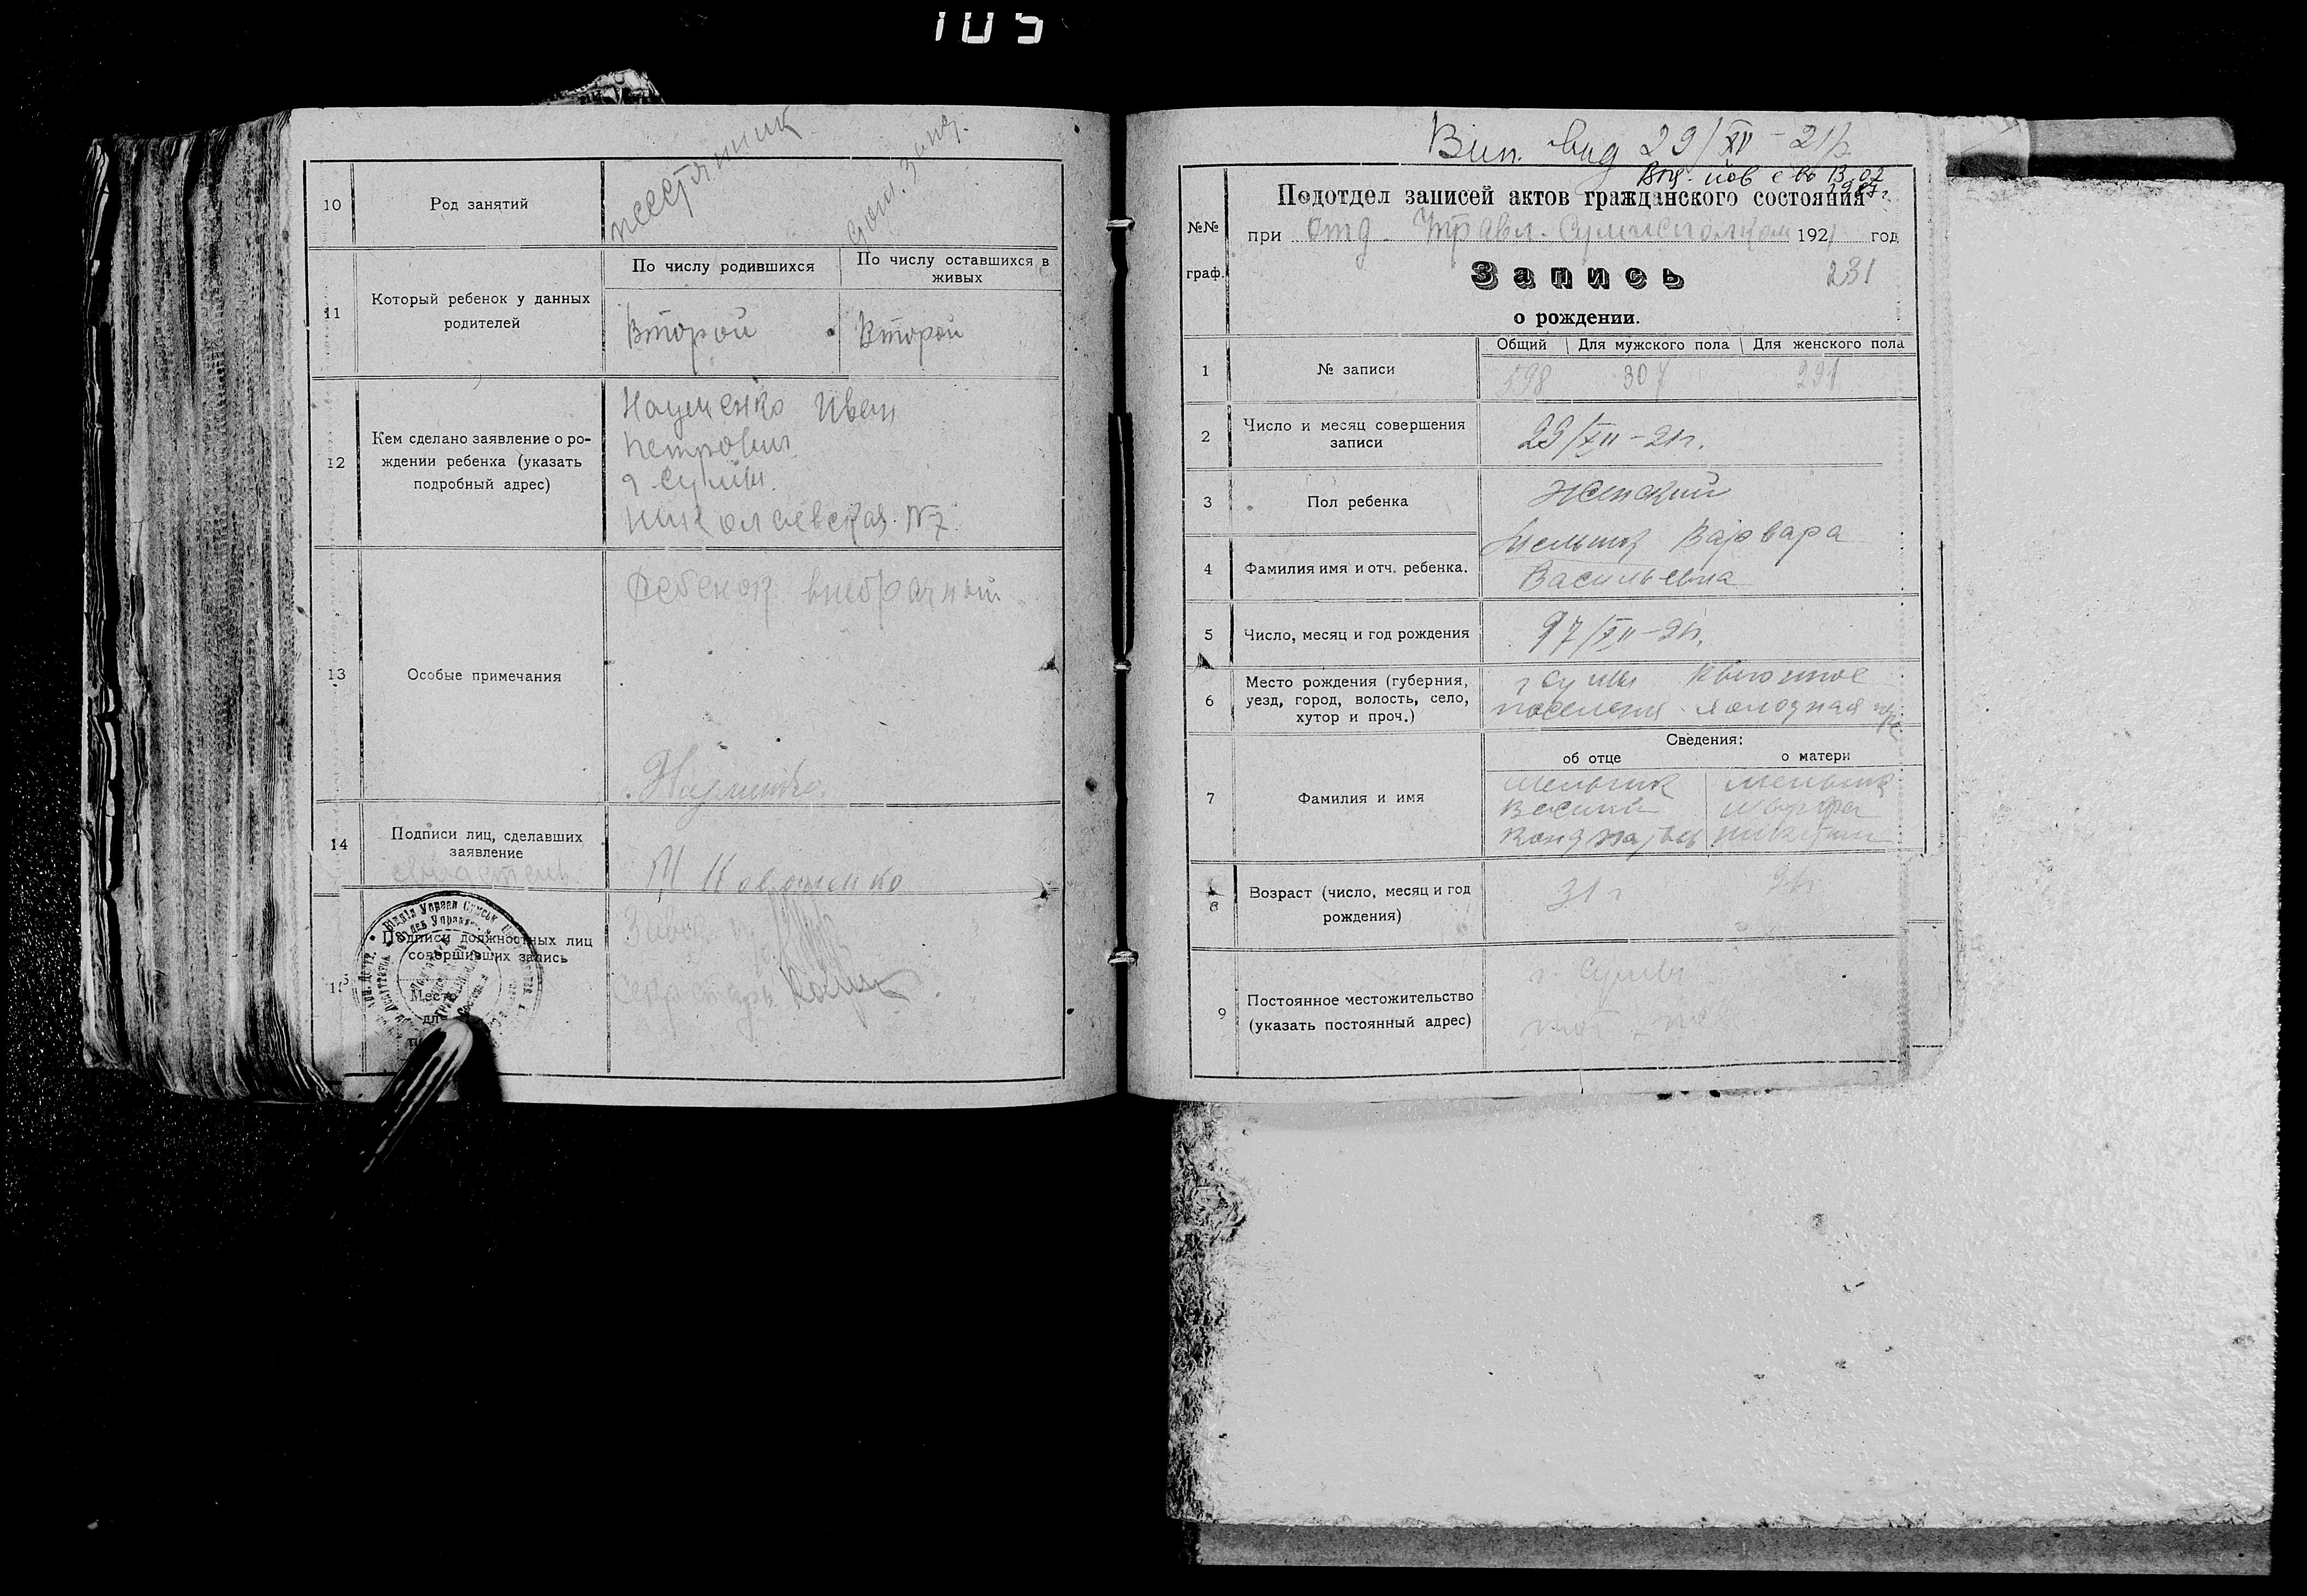 105
10
Род занятий
11
Который ребенок у данных
родителей
По числу родившихся
По числу оставшихся в
живых
Второй
Второй
12
Кем сделано заявление о ро-
ждении ребенка (указать
подробный адрес)
Науменко Иван
Петрович
г Сумы
Николаевская № 7
13
Особые примечания
Ребенок внебрачный
14
Подписи лиц, сделавших
заявление
Подписи должностных лиц
совершивших запись
Место
для
Секретарь
Вип. вид 29/XII-21р.
13.02
Подотдел записей актов гражданского состояния
№№
граф.
при Отд. Управл. 1921 год
Запись
231
о рождении.
1
№ записи
Общий
Для мужского пола
Для женского пола
598
307
291
2
Число и месяц совершения
записи
29/XII-21г.
3
Пол ребенка
Женский
4
Фамилия имя и отч. ребенка.
Мельник Варвара
Васильевна
5
Число, месяц и год рождения
27/XII-21г.
6
Место рождения (губерния,
уезд, город, волость, село,
хутор и проч.)
г Сумы
Холодная
Сведения:
об отце
о матери
7
Фамилия и имя
Мельник
Василий
Мельник
Марфа
8
Возраст (число, месяц и год
рождения)
31 г
9
Постоянное местожительство
(указать постоянный адрес)
г. Сумы